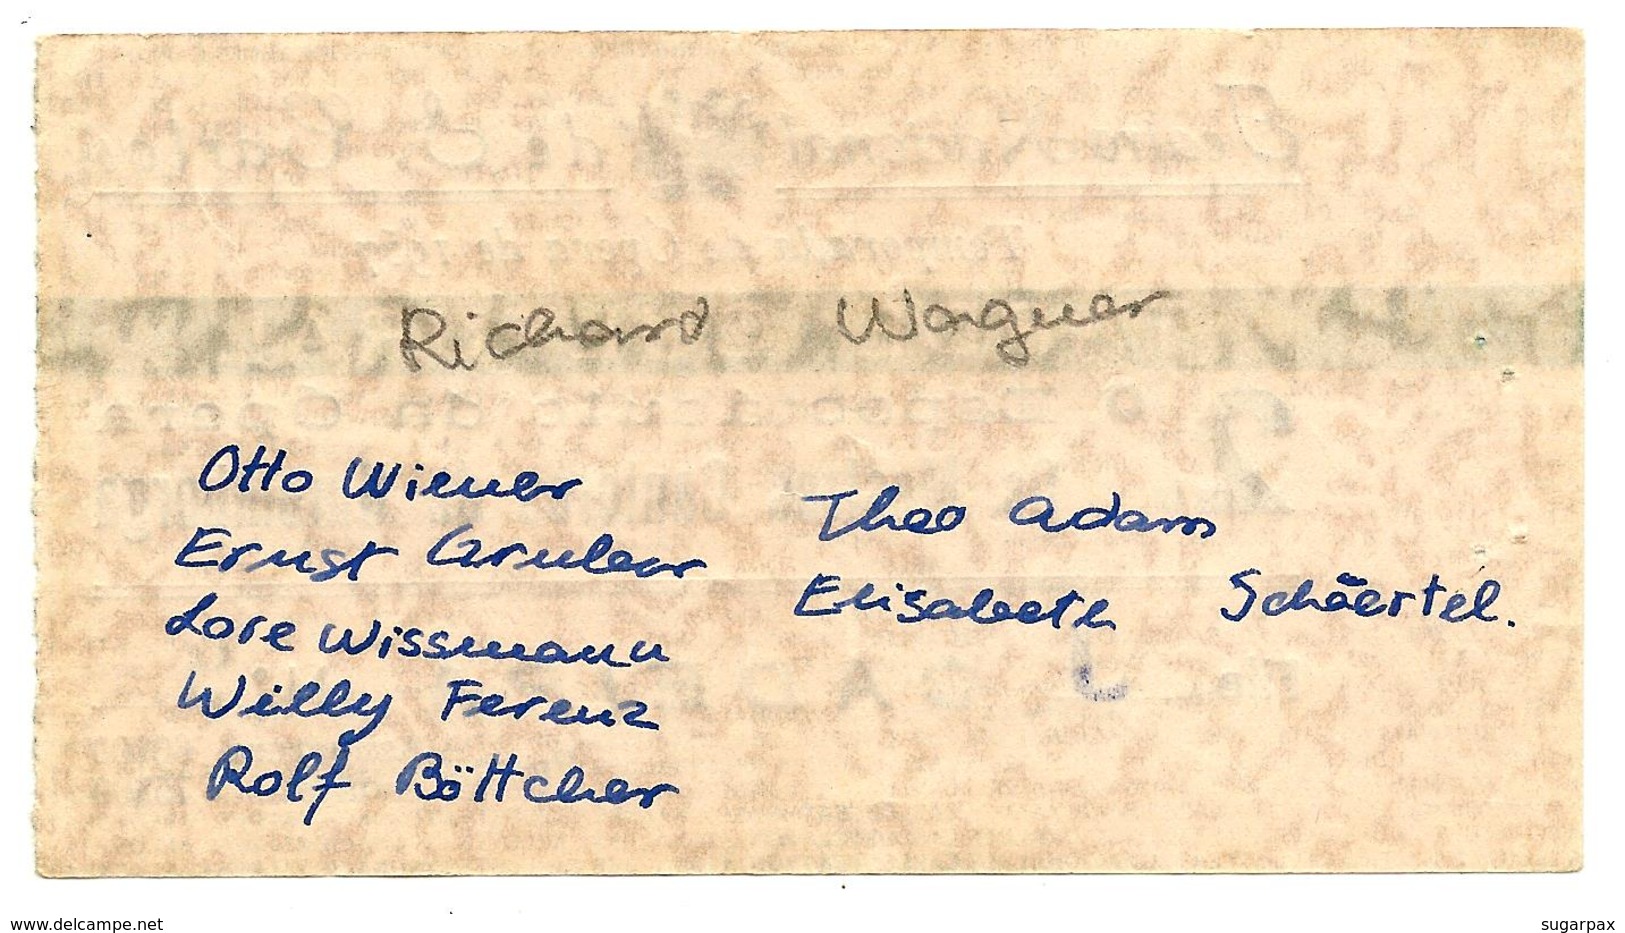 Richard Wagner
Otto Wiener
Ernst Gruber
Lore Wissmann
Willy Ferenz
Rolf Böttcher
Theo Adam
Elisabeth Schäertel.
www.delcampe.net
sugarpax